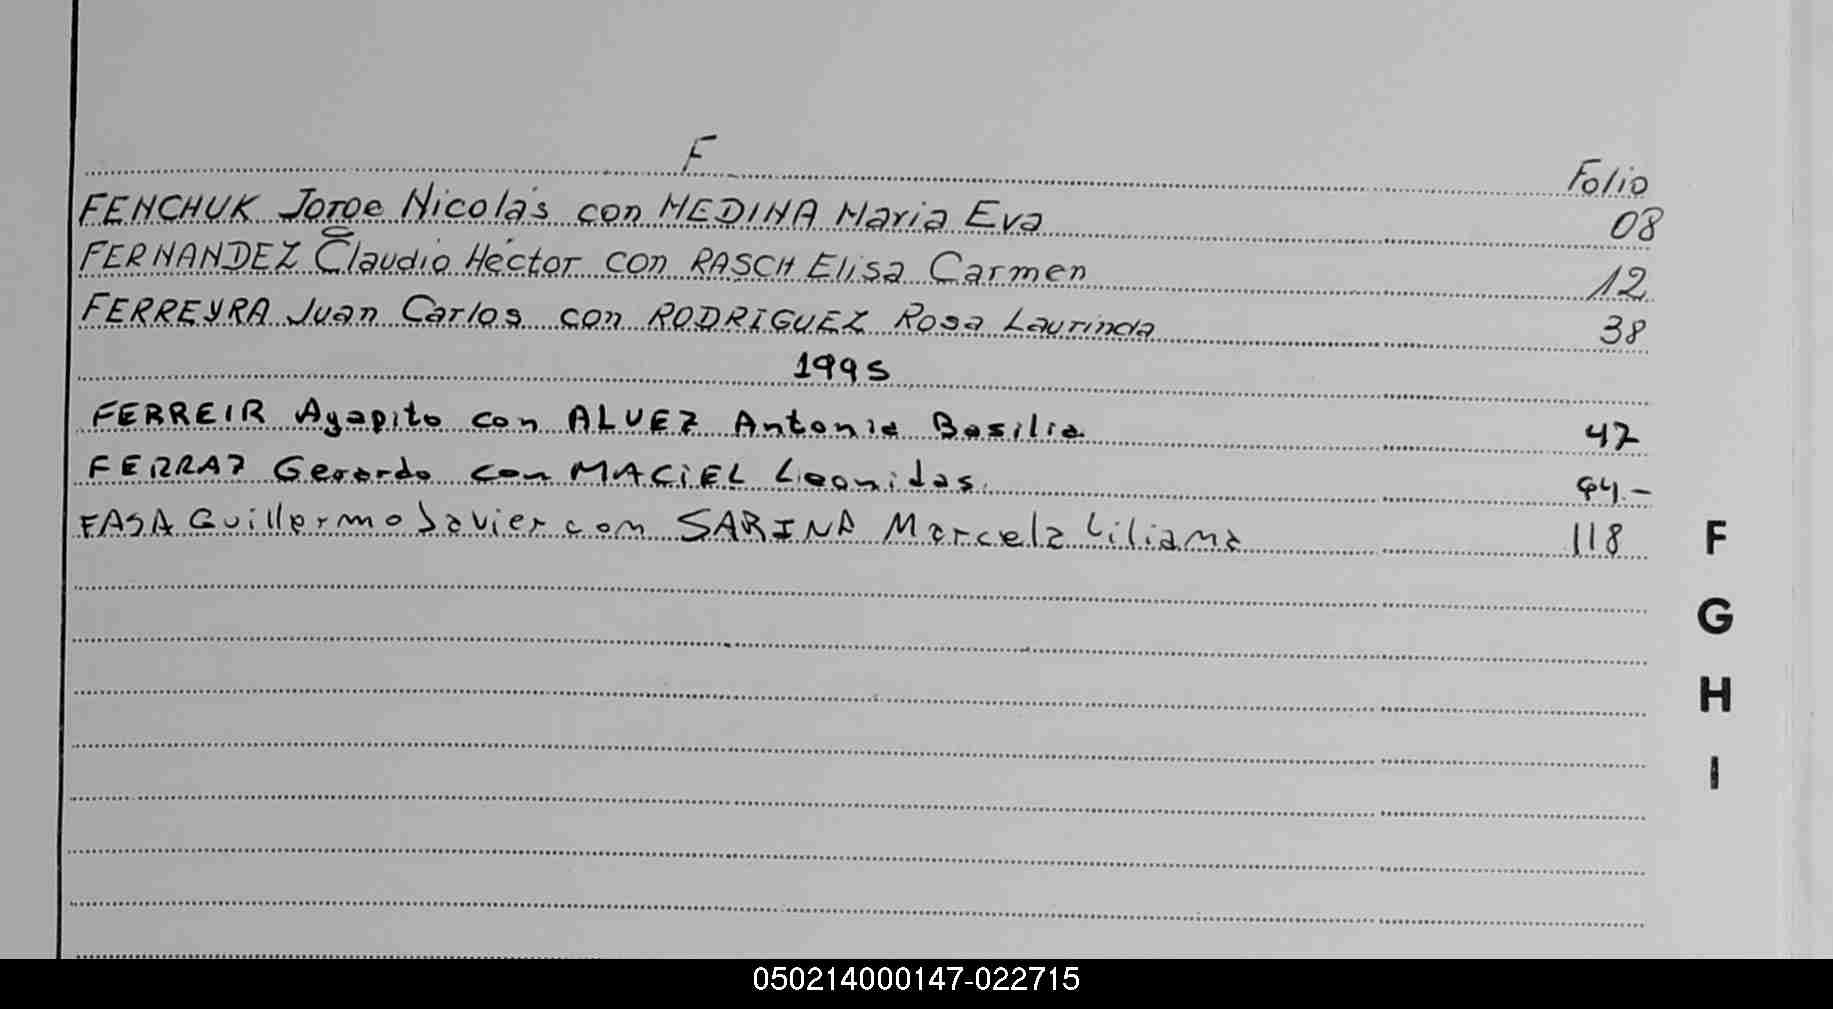 F
Folio
FENCHUK Jorge Nicolás con MEDINA Maria Eva 08
FERNANDEZ Claudio Héctor con RASCH Elisa Carmen 12
FERREYRA Juan Carlos con RODRIGUEZ Rosa Laurinda 38
1995
FERREIR Agapito con ALVEZ Antonia Basilia 47
FERRAZ Gerardo con MACIEL Leonidas. 94.-
FASA Guillermo Javier con SARINA Marcela Liliana 118
F
G
H
I
050214000147-022715